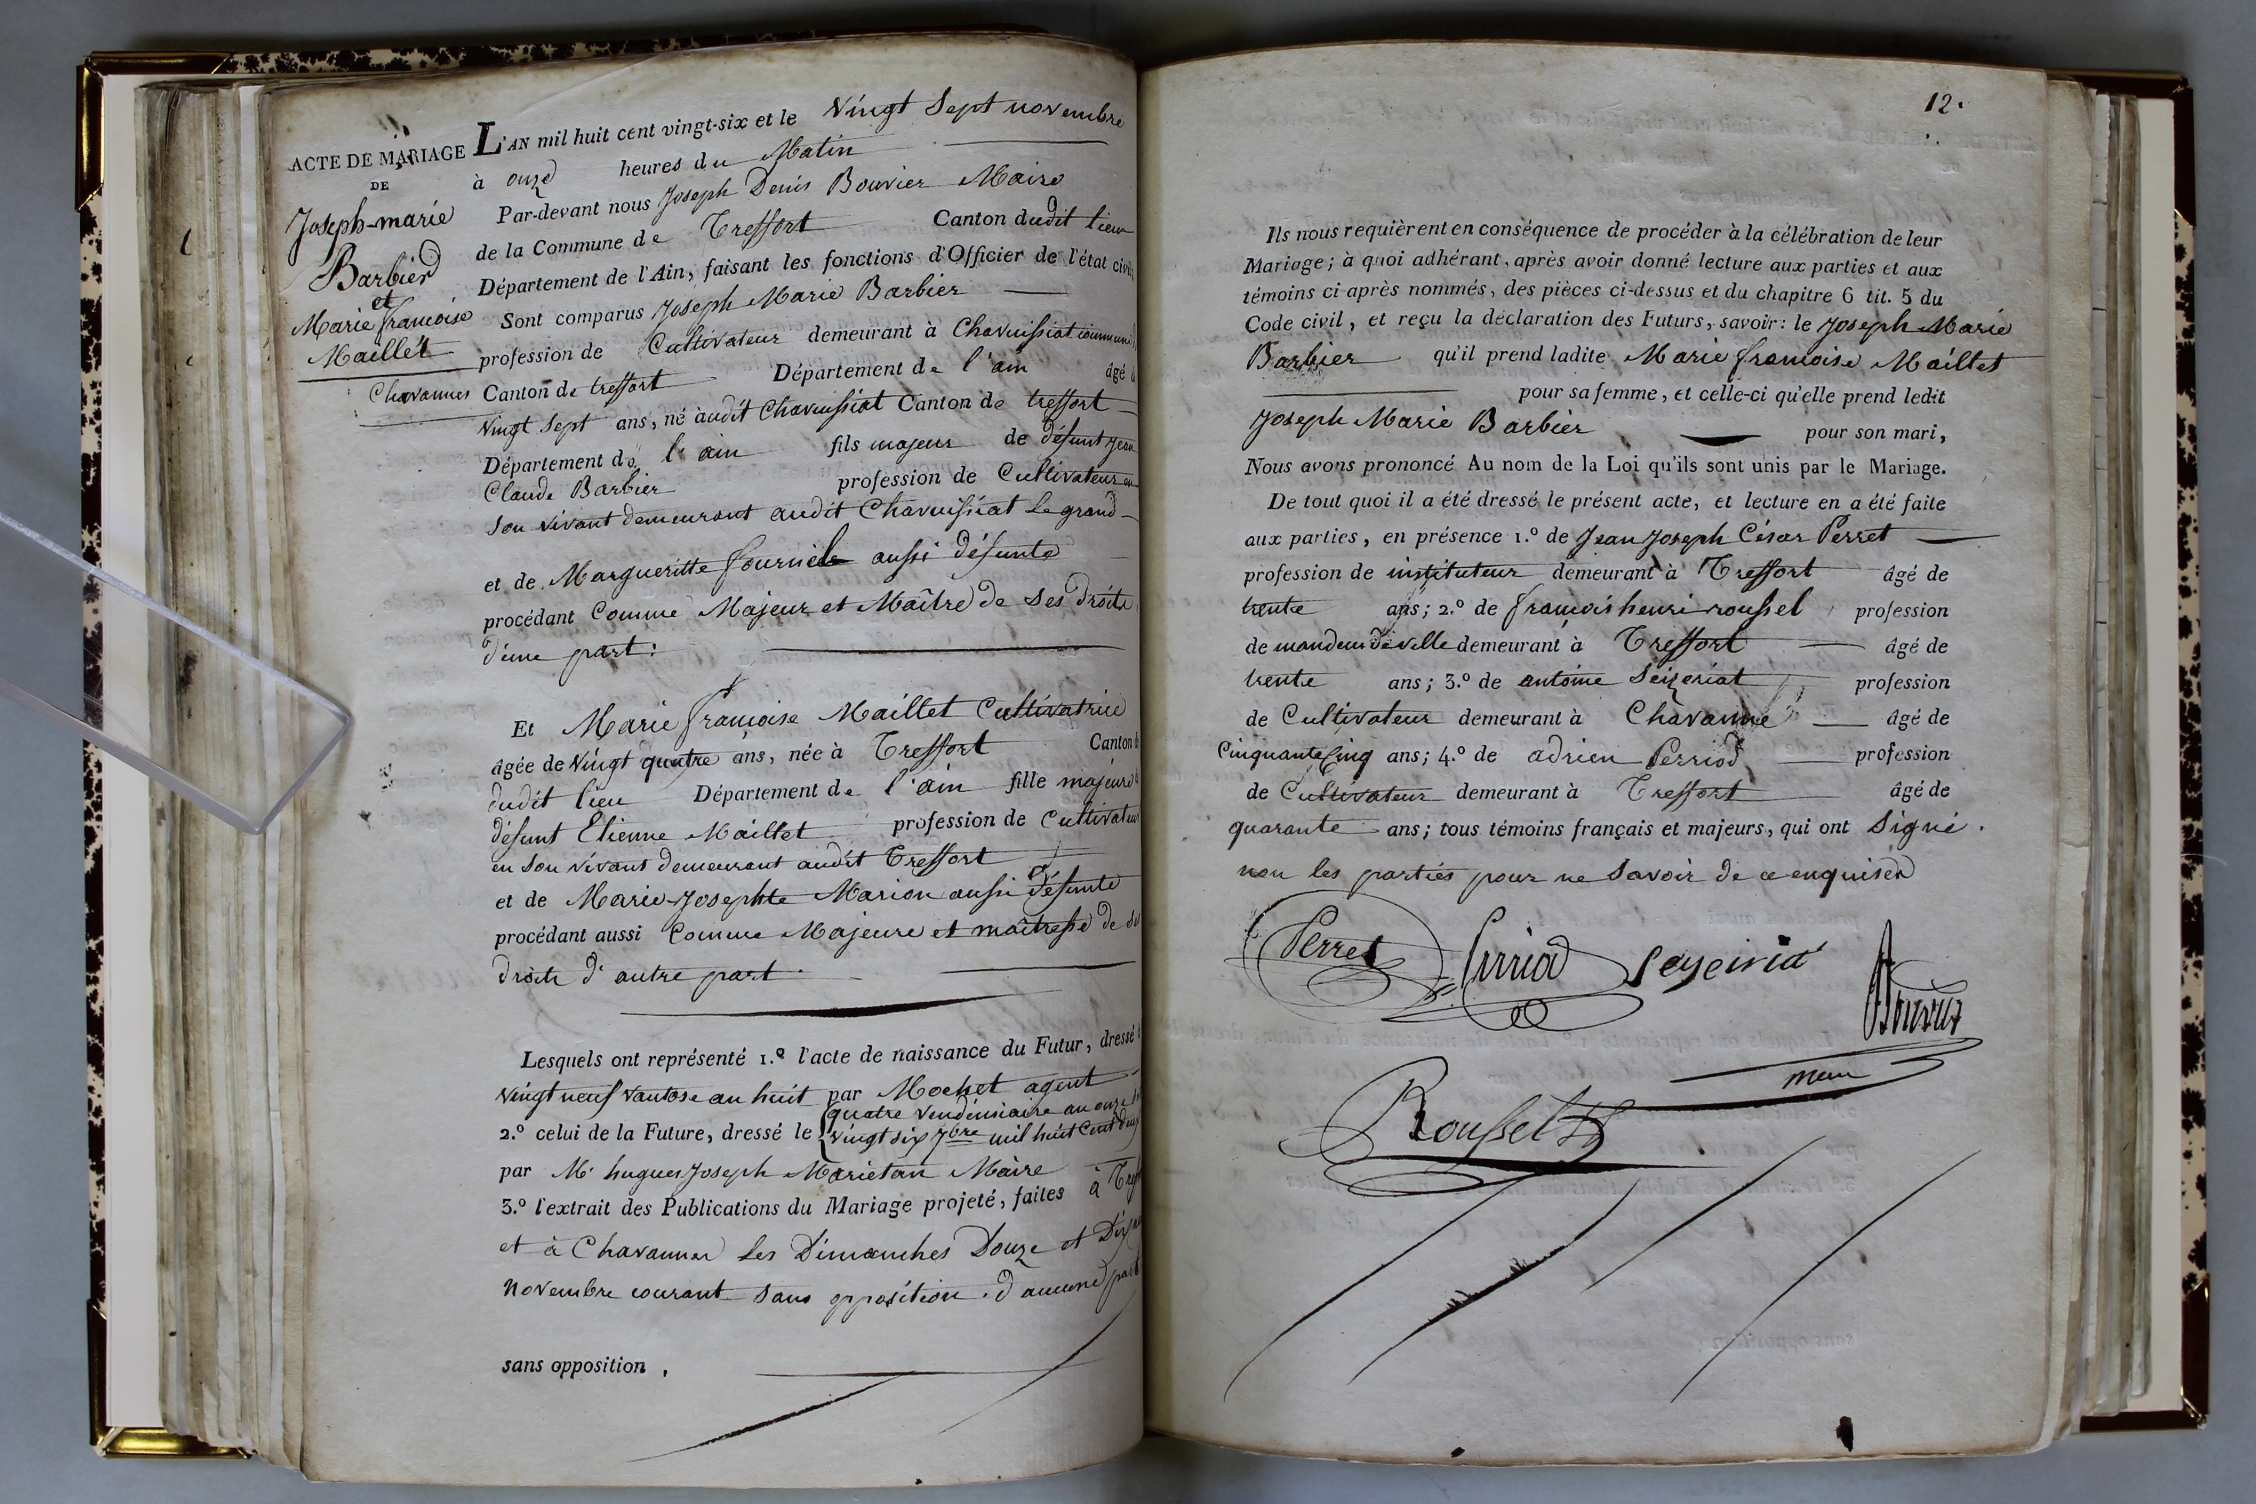 ACTE DE MARIAGE
DE
Joseph-marie
Barbier
et
Marie françoise
Maillet
Chavannes
L'AN mil huit cent vingt-six et le Vingt Sept novembre
à onze heures du Matin
Par-devant nous Joseph Denis Bouvier Maire
de la Commune de Treffort Canton dudit lieu
Département de l'Ain, faisant les fonctions d'Officier de l'état civil,
Sont comparus Joseph Marie Barbier
profession de Cultivateur demeurant à Chavuissiat commune
Canton de treffort Département de l'ain âgé
Vingt Sept ans, né audit Chavuissiat Canton de treffort
Département de l'ain fils majeur de défunt Jean
Claude Barbier profession de Cultivateur en
son vivant demeurant audit Chavuissiat Le grand
et de Margueritte aussi défunte
procédant Comme Majeur et Maître de Ses droits
d'une part :
Et Marie françoise Maillet Cultivatrice
âgée de Vingt quatre ans, née à Treffort Canton
dudit lieu Département de l'ain fille majeure
défunt Etienne Maillet profession de Cultivateur
en Son vivant demeurant audit Treffort
et de Marie-Josephte Marion aussi défunte
procédant aussi Comme Majeure et maîtresse de
droits d'autre part.
Lesquels ont représenté 1.º l'acte de naissance du Futur, dressé
Vingt neuf Vantose an huit par Mochet agent
quatre Vendémiaire an onze
2.º celui de la Future, dressé le vingt six 7bre mil huit Cent deux
par Mr hugues Joseph Marietan Maire
3.º l'extrait des Publications du Mariage projeté, faites à
et à Chavannes Les Dimanches Douze et
Novembre courant Sans opposition d'aucune part
sans opposition.
12.
Ils nous requièrent en conséquence de procéder à la célébration de leur
Mariage; à quoi adhérant, après avoir donné lecture aux parties et aux
témoins ci-après nommés, des pièces ci-dessus et du chapitre 6 tit. 5 du
Code civil, et reçu la déclaration des Futurs, savoir: le Joseph Marie
Barbier qu'il prend ladite Marie françoise Maillet
pour sa femme, et celle-ci qu'elle prend ledit
Joseph Marie Barbier pour son mari,
Nous avons prononcé Au nom de la Loi qu'ils sont unis par le Mariage.
De tout quoi il a été dressé le présent acte, et lecture en a été faite
aux parties, en présence 1.º de Jean Joseph César Perret
profession de instituteur demeurant à Treffort âgé de
trente ans; 2.º de françois henri roussel profession
de mandeur de ville demeurant à Treffort âgé de
trente ans; 3.º de antoine Seizeriat profession
de Cultivateur demeurant à Chavanne âgé de
Cinquante Cinq ans; 4.º de adrien Perriod profession
de Cultivateur demeurant à Treffort âgé de
quarante ans; tous témoins français et majeurs, qui ont Signé.
non les parties pour ne Savoir de ce enquises
Perret Seyeiriat
Bouvier
Roussel